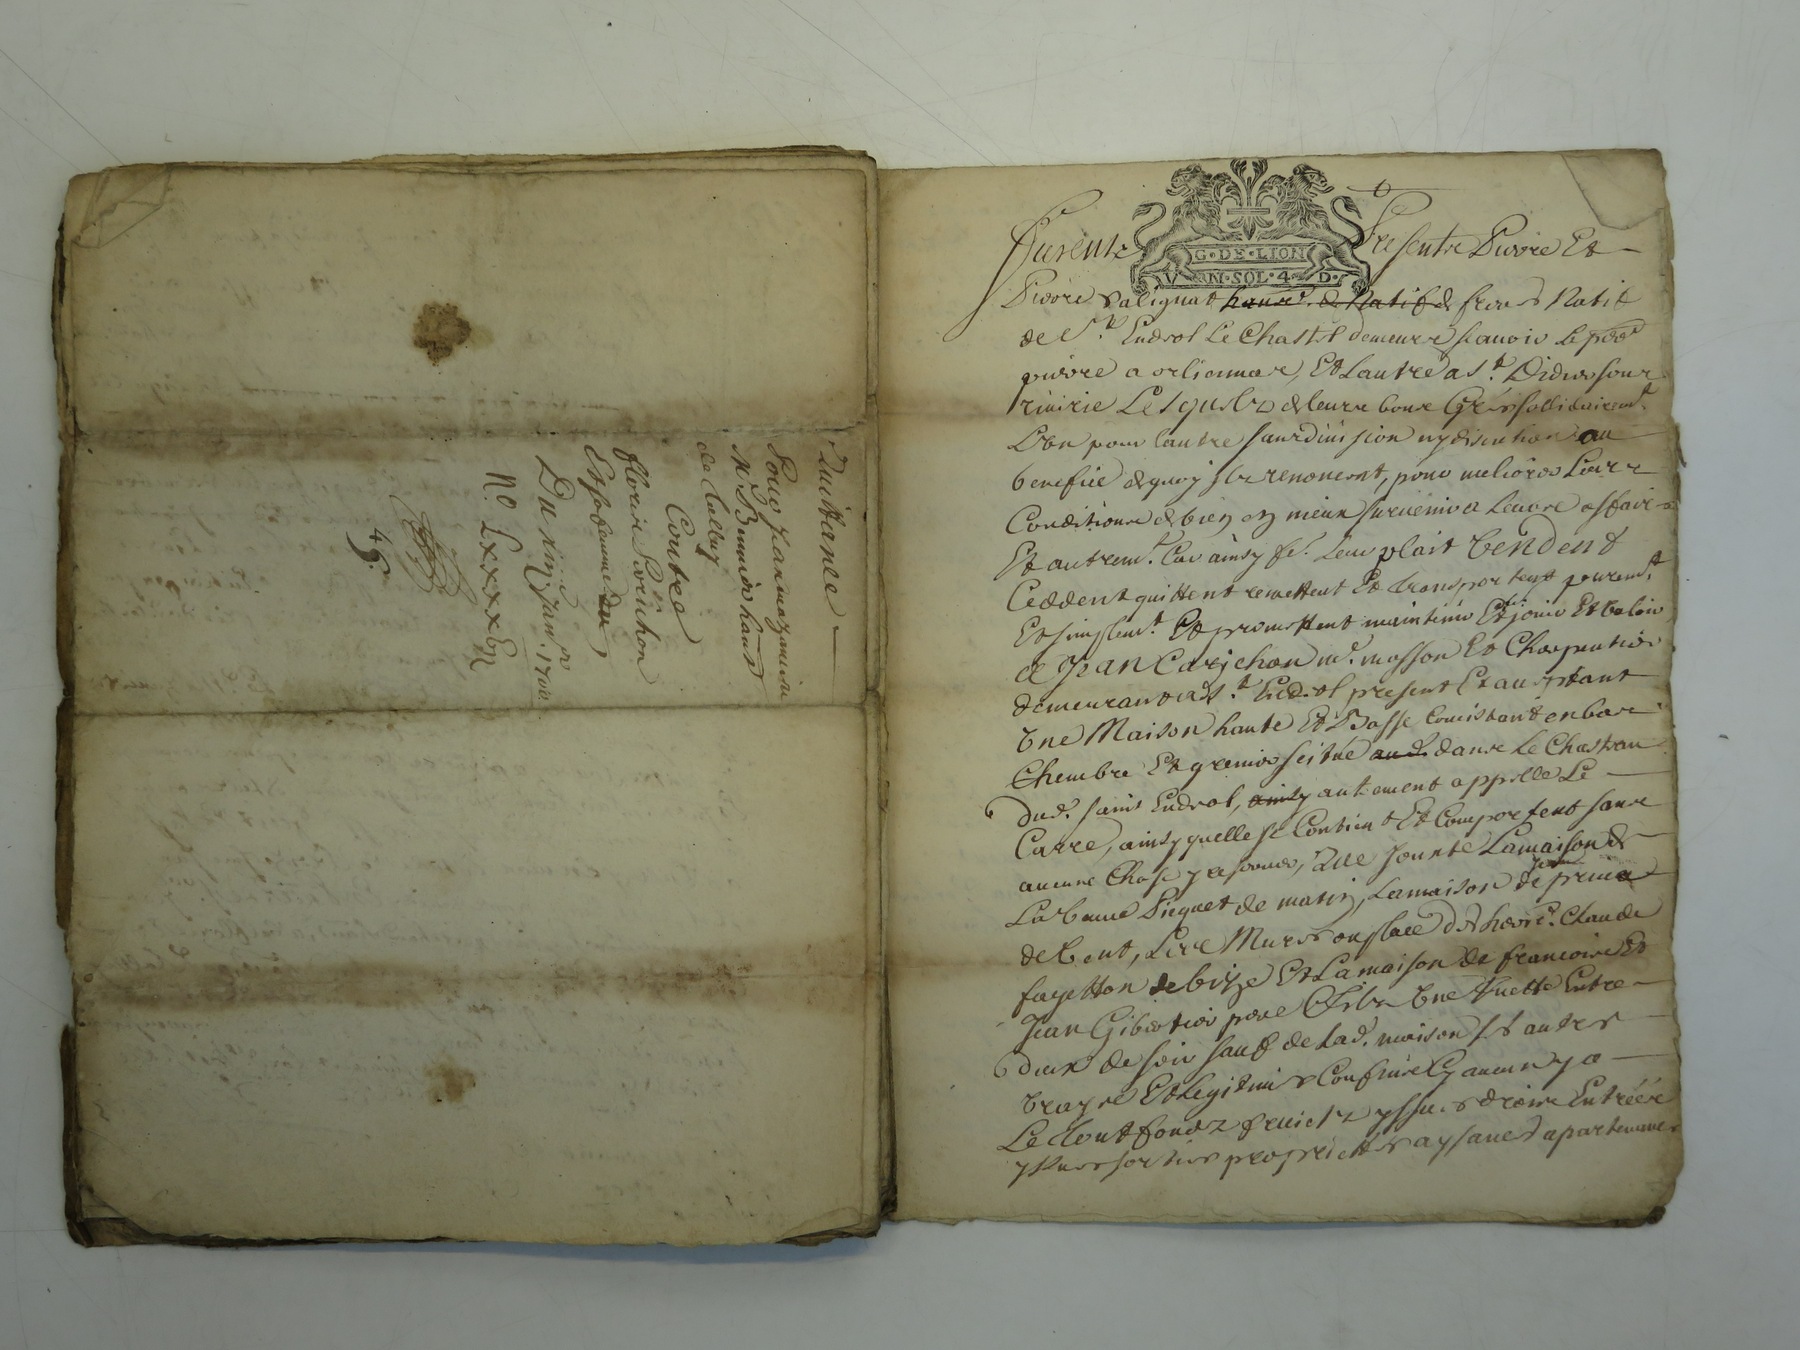 Quittance
Pour Jean
de
Contre
fleurie Perichon
Et sa femme
Du xiij Janr. 1700.
No. Lxxxxbn
49.
G·DE·LION
V AN·SOL·4·D·
furent presents Pierre Et
Pierre Salignat freres Natif
de St. Eudrol Le Chastel demeure scauoir Le
pierre a orlienna, Et Lautre a St. Didier sour
riuirie Lesquels de leurs bons Gres sollidairemt.
L'un pour lautre sans diuision ny discution au
benefice de quoy ils renoncent, pour meliorer Leurs
Conditions et bien en mieux suruenir a Leurs affaires
Et autremt. Car ainsy leur plait Vendent
Ceddent quittent remettent Et transportent puremt.
Et simplemt. Et promettent maintenir Et faire jouir Et valoir
a Jean Carrichon md. masson Et Charpentier
demeurant aud St. Eudrol present Et aceptant
Une Maison haute Et Basse Consistant en bas
Chambre Et grenier scitué dans Le Chasteau
dud. saint Eudrol, autrement appellé Le
Carre, ainsy quelle se Contient Et Comportent sans
aucune Chose y reseruer, Que Jouxte La maison de
La veuue Piquet de matin, La maison de
de vent, Les Mures ou place des heors. Claude
fayetton de bize Et La maison de francoise Et
Jean Gibertier Une Ruette Entre
deux de soir sauf de Lad. maison ses autres
vrays Et Legitimes Confins sy aucun y a
Le tout fondz fruictz yssues droits Entrées
yssues sorties proprietés aysances apartenances